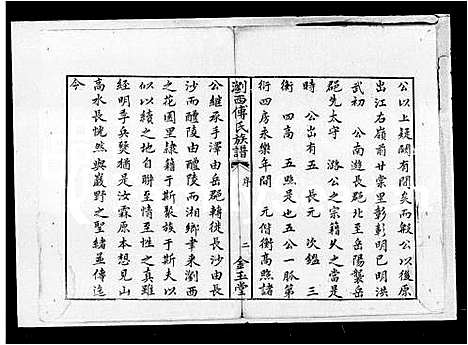 公以上疑闕有間矣而殷公以後原
出江右嶺前甘棠里彰彰明已明洪
武初　公南遊長郡北至岳陽襲岳
郡先太守　潞公之宗籍久之當是
時　公出有五　長元　次鑑　三
衡　四高　五照是也五公一脈第
衍四房永樂年間　元付衡高照諸
瀏西傅氏族譜　序　二　金玉堂
公維承手澤由岳郡轉徙長沙由長
沙而醴陵由醴陵而湘鄉聿來瀏西
之花園里隸籍于斯聚族于斯夫以
似以續之地自聯至情至性之真雖
經明季兵燹猶是汝霖原本想見山
高水長恍然與巖野之聖緒並傳迄
今